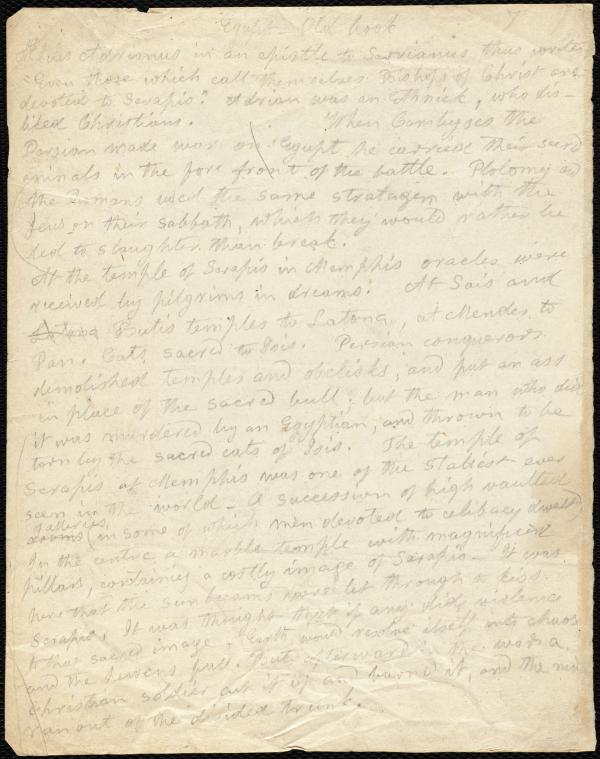 Egypt – Old book
Adrianus in an epistle to Servianus thus writes
"Even those which call themselves Bishops of Christ are
devoted to Serapis." Adrian was an Ethnick, who dis-
liked Christians. When Cambyses the
Persian made war on Egypt he carried their sacred
animals in the fore front of the battle. Ptolomy and
the Romans used the same stratagem with the
Jews on their Sabbath, which they would rather be
led to slaughter than break.
At the temple of Serapis in Memphis oracles were
received by pilgrims in dreams. At Sais and
Latona Butis temples to Latona, at Mendes to
Pan. Cats sacred to Isis. Persian conquerors
demolished temples and obelisks, and put an ass
in place of the sacred bull; but the man who did
it was murdered by an Egyptian, and thrown to be
torn by the sacred cats of Isis. The temple of
Serapis at Memphis was one of the stateliest ever
seen in the world – A succession of high vaulted
galleries
rooms (in some of which men devoted to celibacy dwelt)
In the centre a marble temple with magnificent
pillars, containing a costly image of Serapis – It was
here that the sun beams were let through to kiss
Serapis. It was thought that if any did violence
to that sacred image. Earth would resolve itself into chaos
and the heavens fall. But afterward in the wars a
christian soldier cut it up and burned it, and the mice
ran out of the divided trunk.